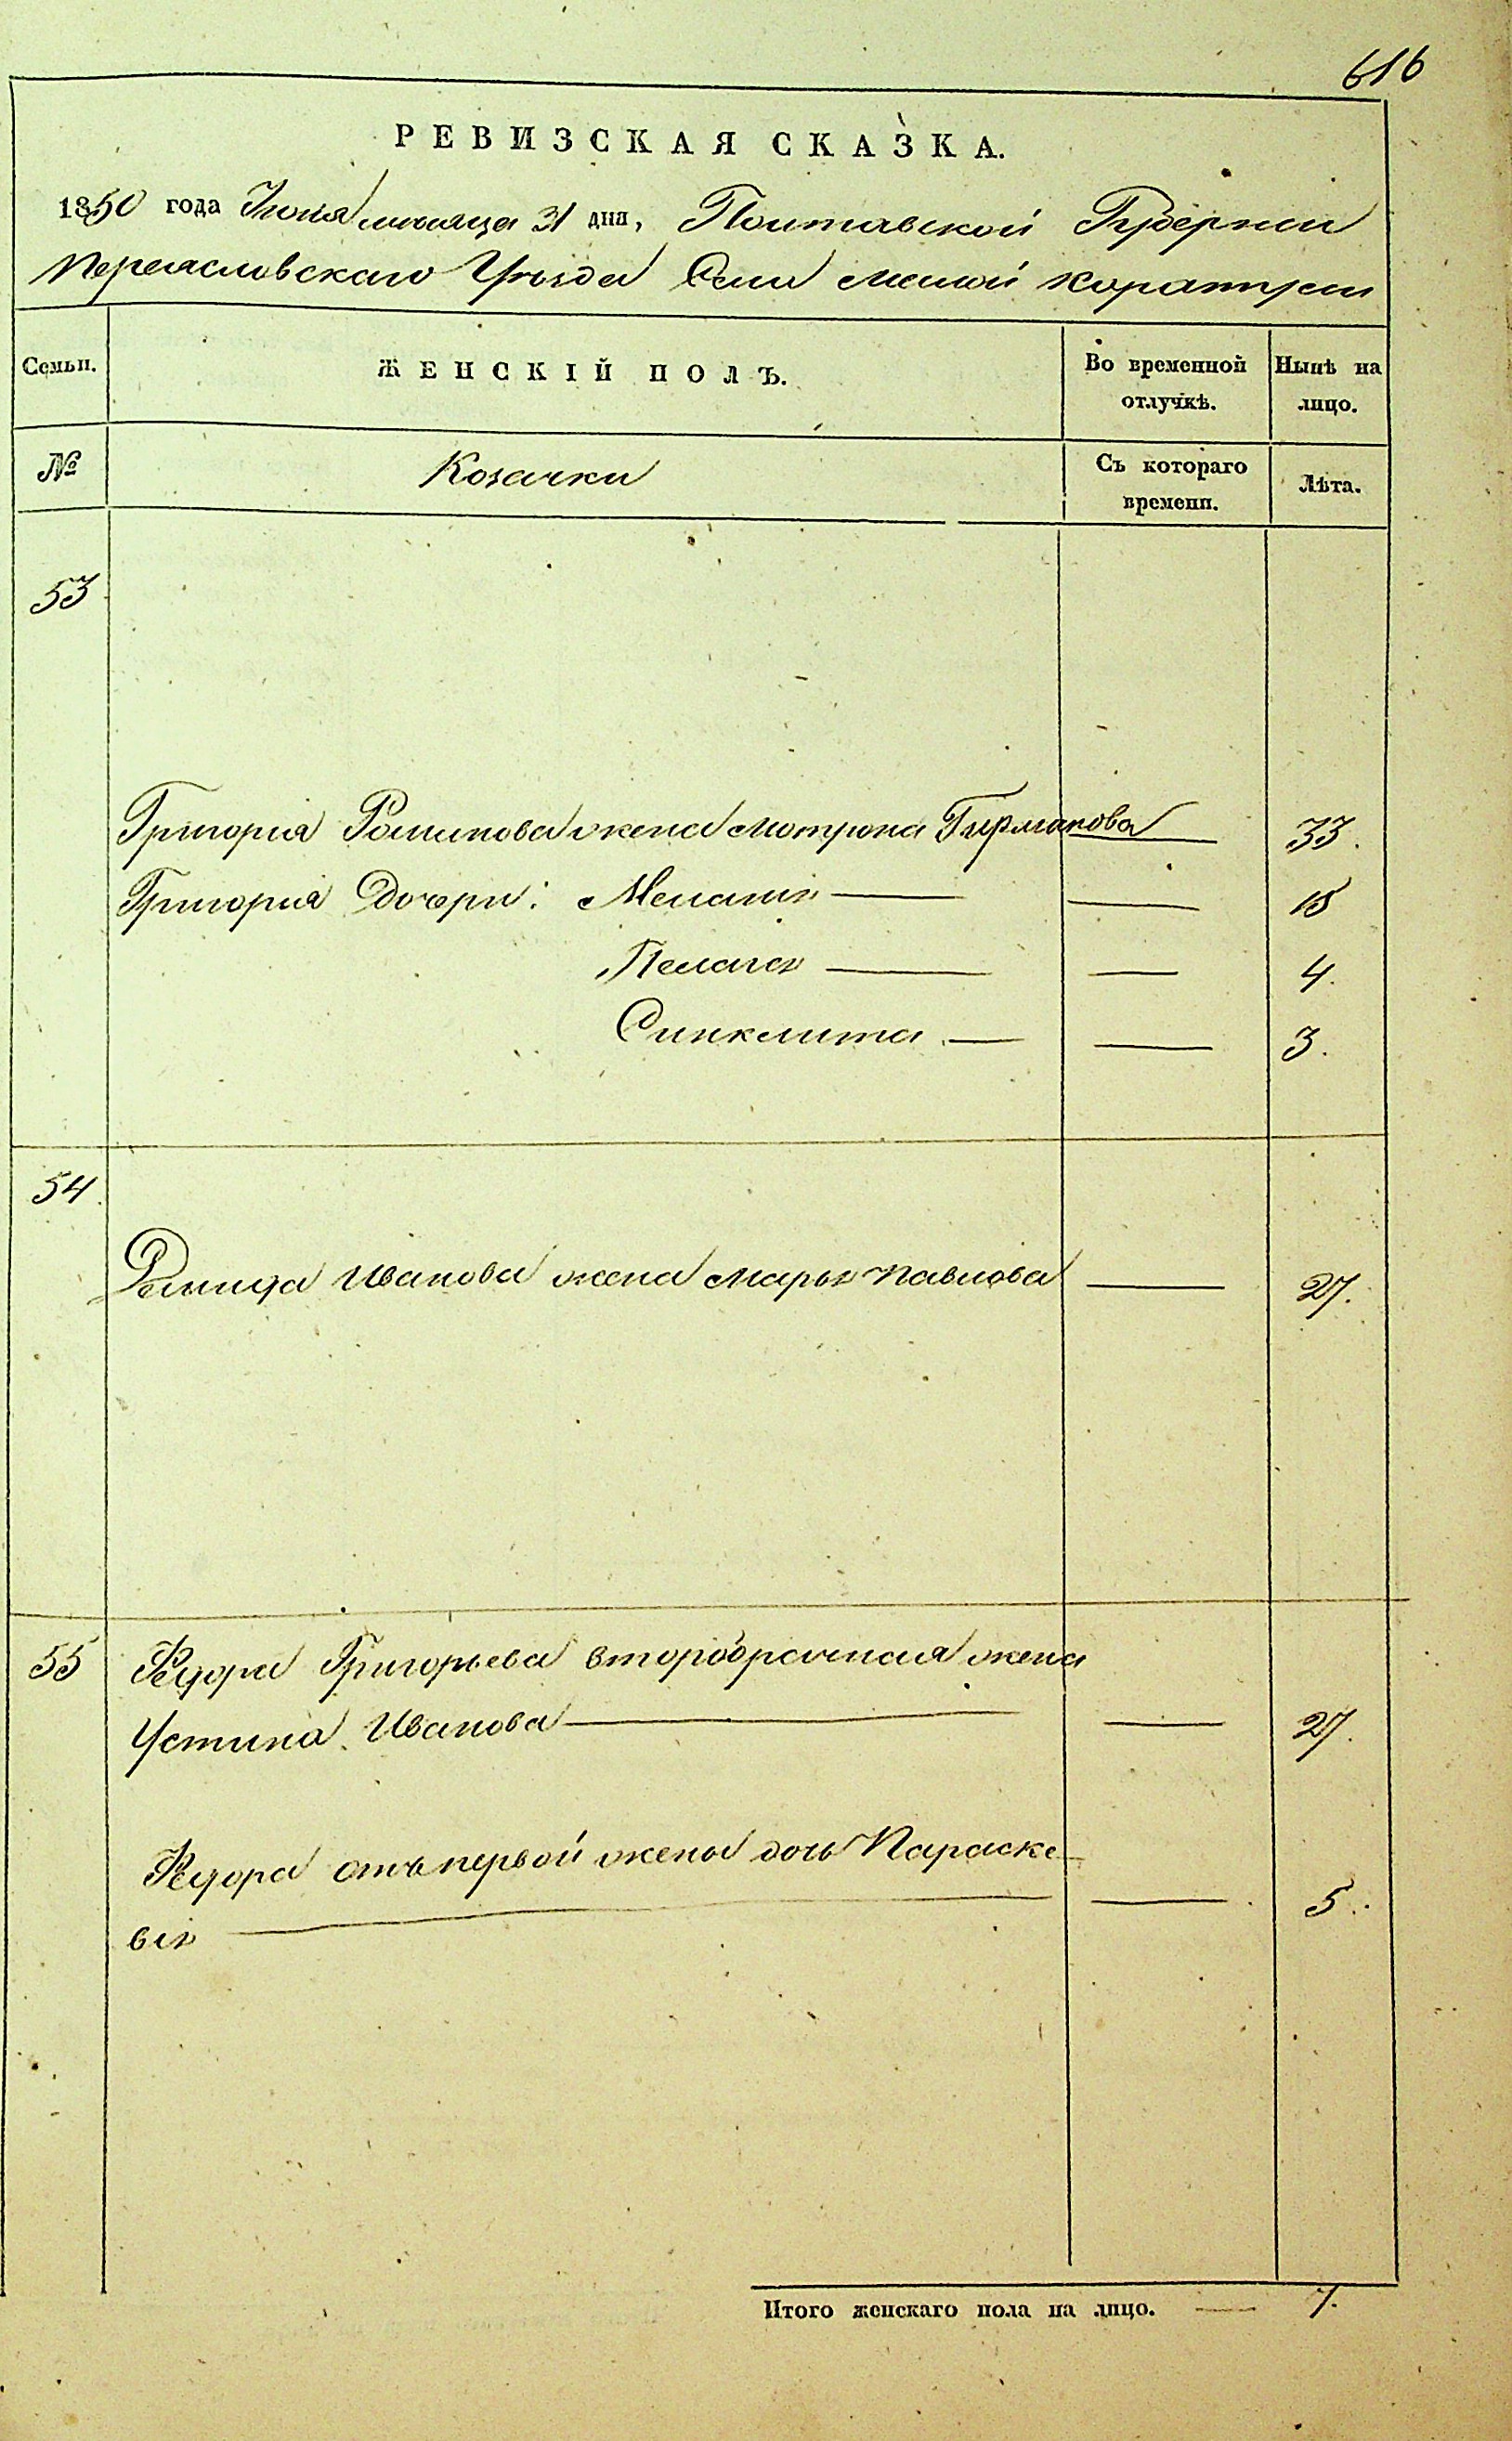 616
РЕВИЗСКАЯ СКАЗКА.
1850 года Июля месяца 31 дня, Полтавской Губернии
Переясловскаго Уѣзда Села Малой Каратули
Семьи. ЖЕНСКІЙ ПОЛЪ. Во временной отлучкѣ. Нынѣ на лицо.
№ Козачки Съ котораго времени. Лѣта.
53
Григорія жена Мотрона 33.
Григорія Дочери: Меланія — — 18
Пелагея — — 4.
Синклита — — 3.
54
Иванова жена Марья Павлова — 27.
55 Федора Григорьева второбрачная жена
Устина Ивановa — — 27.
Федора отъ первой жены дочь Параске-
вія — — 5.
Итого женскаго пола на лицо. — 7.